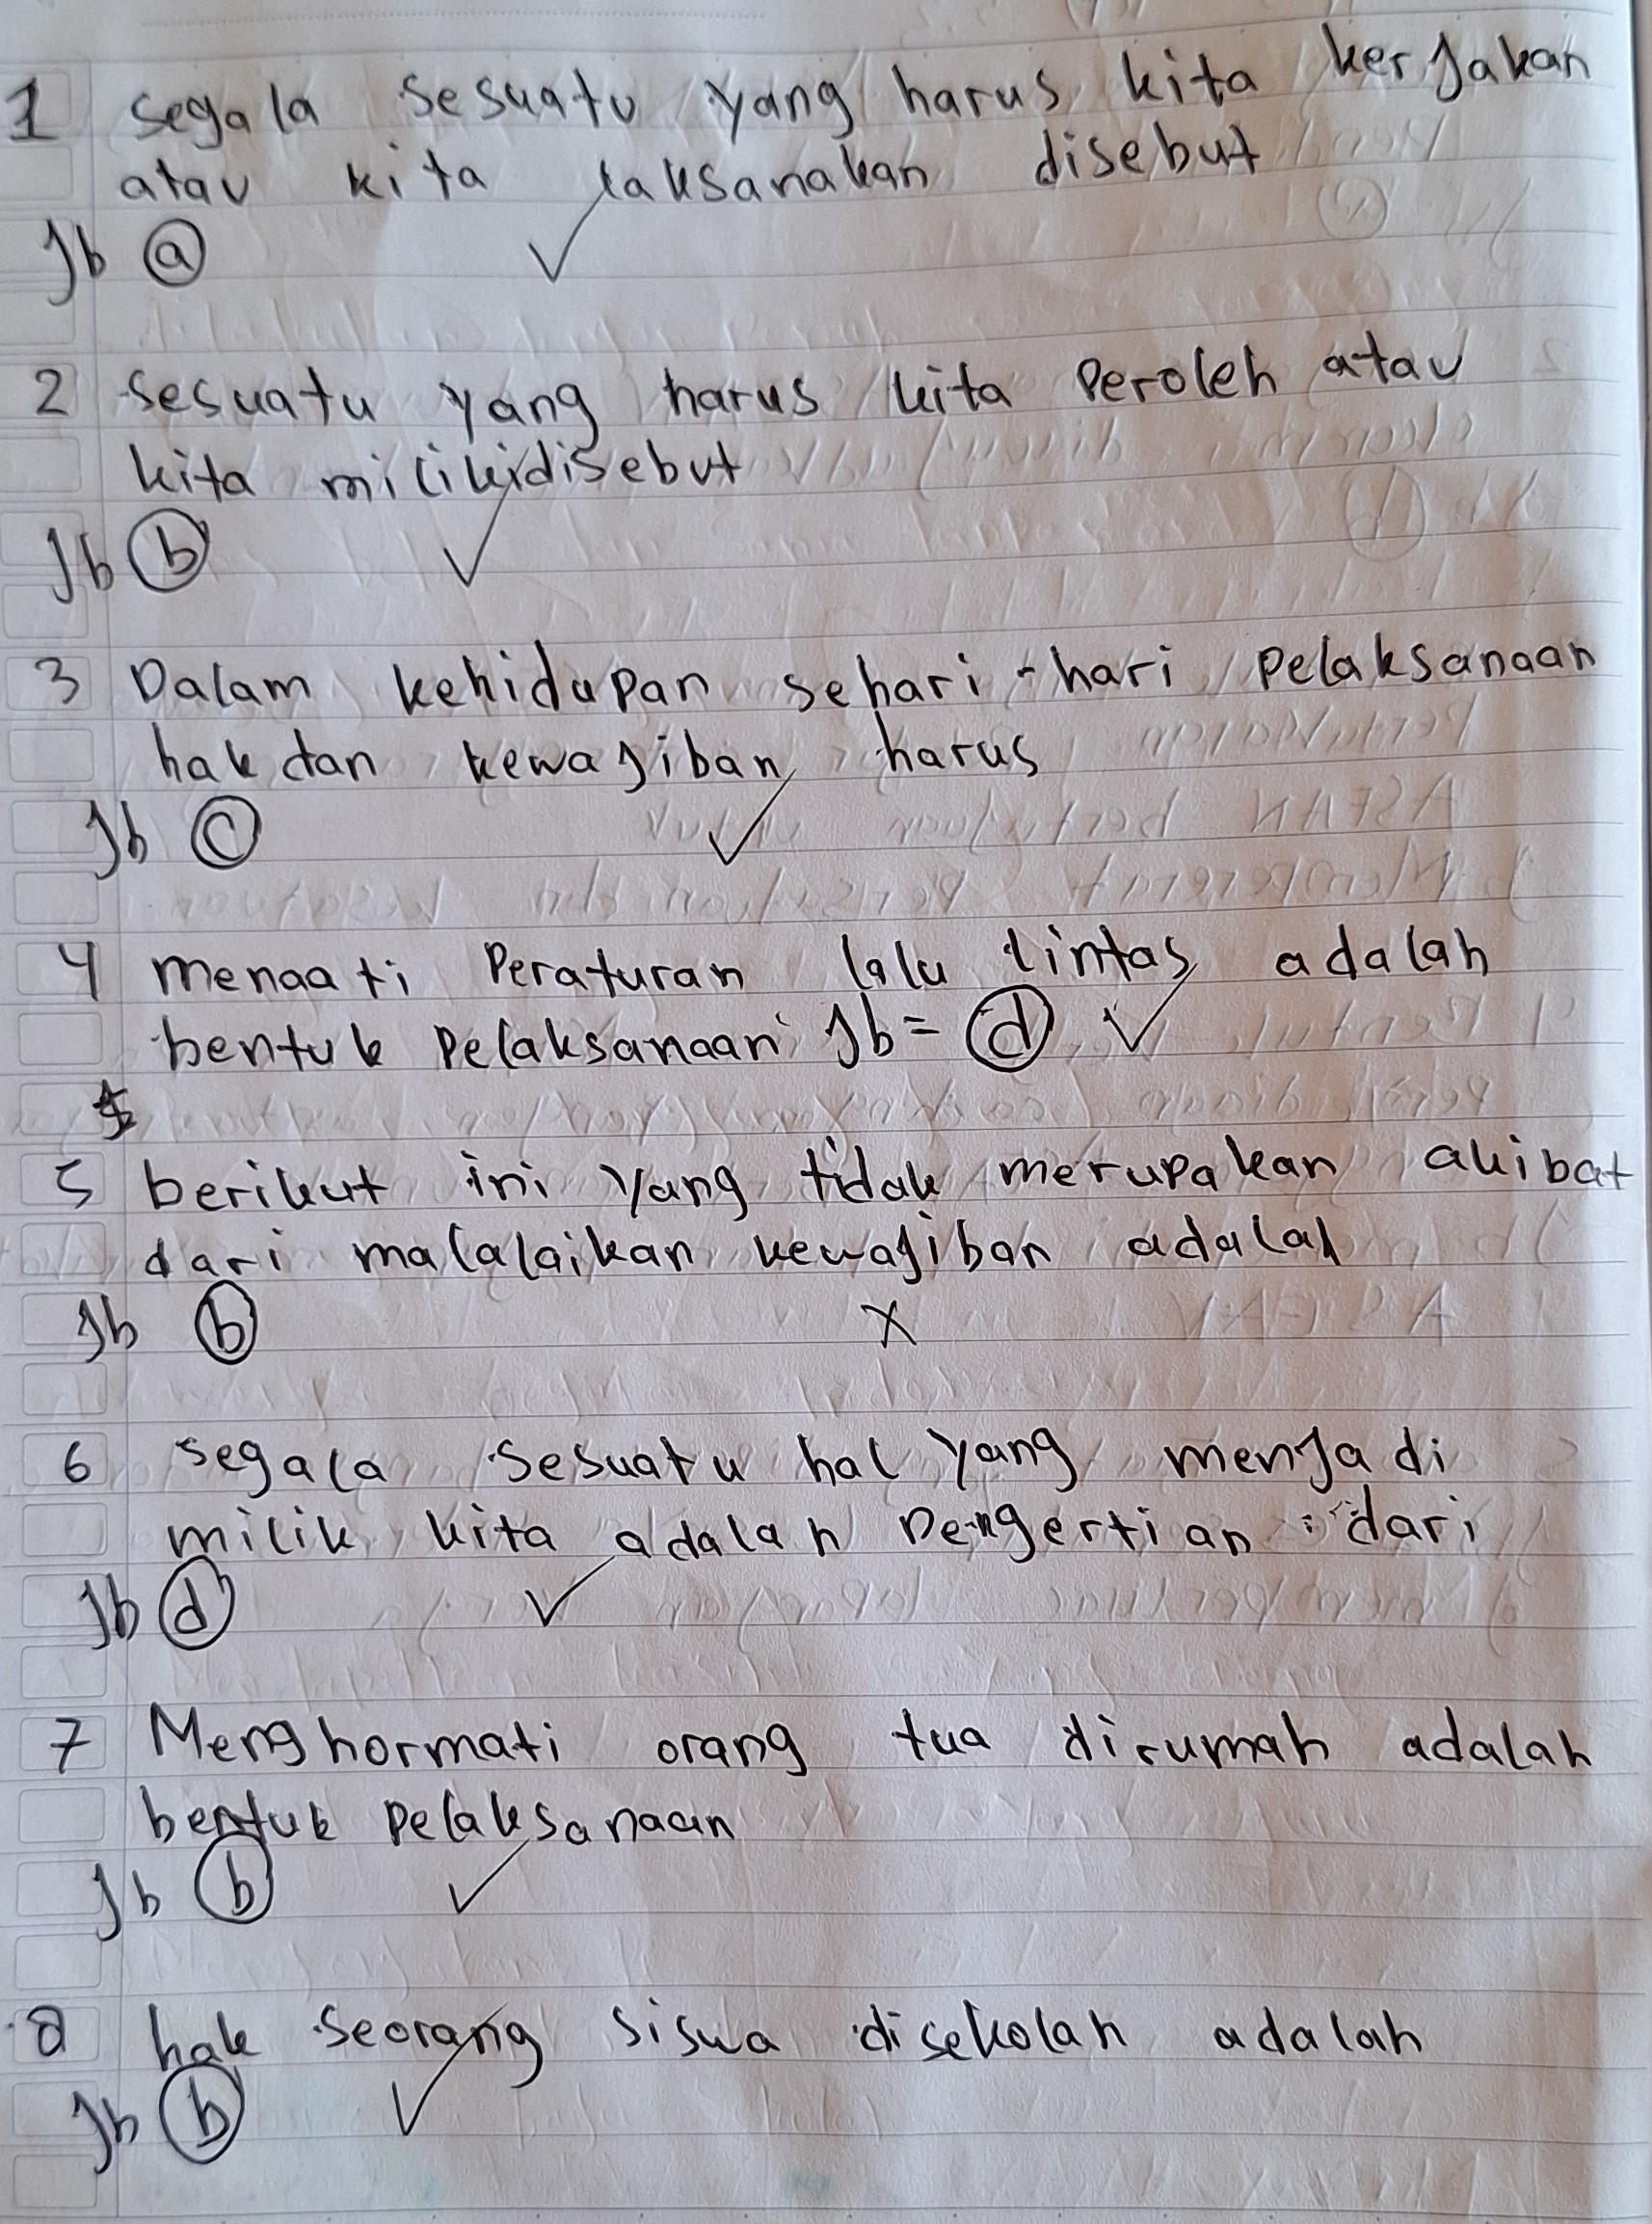 1 segala sesuatu yang harus kita kerjakan
atau kita laksanakan disebut
Jb a
2 sesuatu yang harus kita Peroleh atau
kita milikidisebut
Jb b
3 Dalam kehidupan sehari-hari Pelaksanaan
hak dan kewajiban harus
Jb c
4 menaati Peraturan lalu lintas adalah
bentuk Pelaksanaan Jb = d
5 berikut ini yang tidak merupakan akibat
dari malalaikan kewajiban adalah
Jb b
6 segala sesuatu hal yang menjadi
milik kita adalah Pengertian dari
Jb d
7 Menghormati orang tua dirumah adalah
bentuk Pelaksanaan
Jb b
8 hak seorang siswa disekolah adalah
Jb b